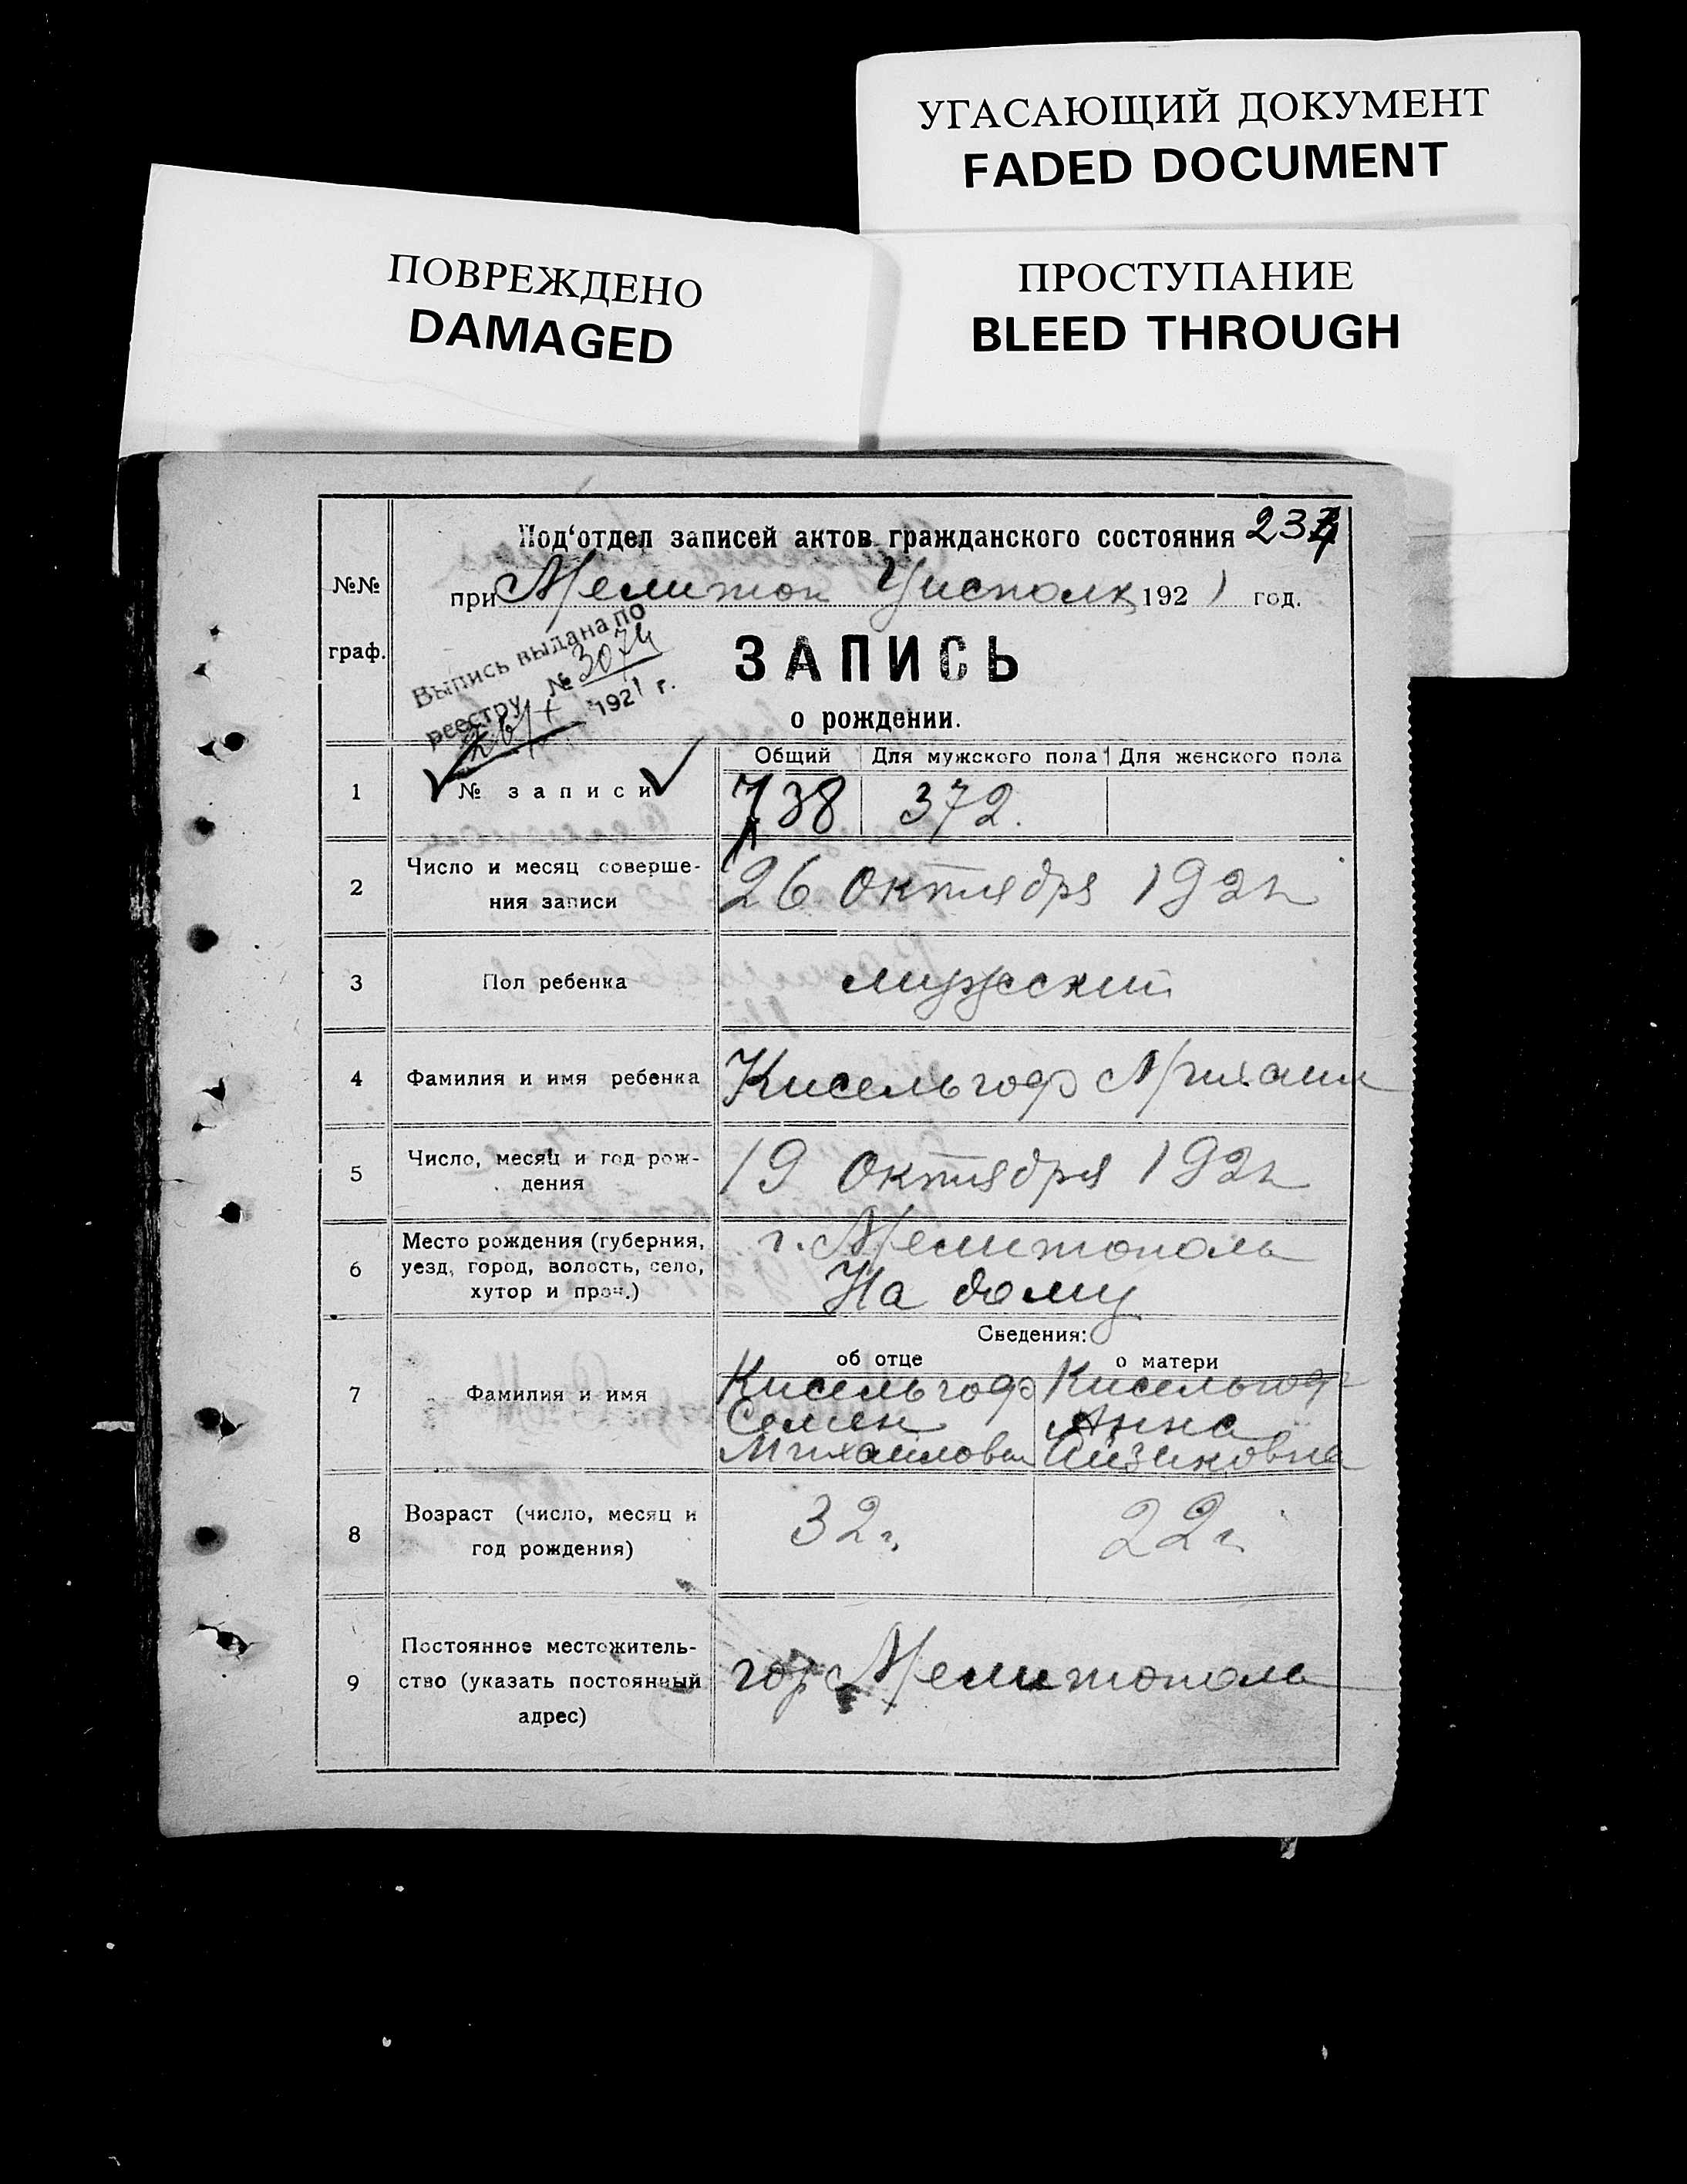 УГАСАЮЩИЙ ДОКУМЕНТ
FADED DOCUMENT
ПОВРЕЖДЕНО
DAMAGED
ПРОСТУПАНИЕ
BLEED THROUGH
Под‘отдел записей актов гражданского состояния
№№ граф.
при Мелитоп Уисполк 1921 год.
Выпись выдана по
реестру № 3074
1921 г.
ЗАПИСЬ
о рождении.
Общий Для мужского пола Для женского пола
1 № записи 738 372.
2 Число и месяц соверше-
ния записи
26 Октября 192
3 Пол ребенка мужский
4 Фамилия и имя ребенка Кисельгоф Михаил
5 Число, месяц и год рож-
дения
19 Октября 192
6 Место рождения (губерния,
уезд, город, волость, село,
хутор и проч.)
г. Мелитополь
На дому
Сведения:
об отце о матери
7 Фамилия и имя
Кисельгоф Кисельгоф
Семен Анна
Михайлович Айзиковна
8 Возраст (число, месяц и
год рождения)
32 г. 22 г.
9 Постоянное местожитель-
ство (указать постоянный
адрес)
гор Мелитополь